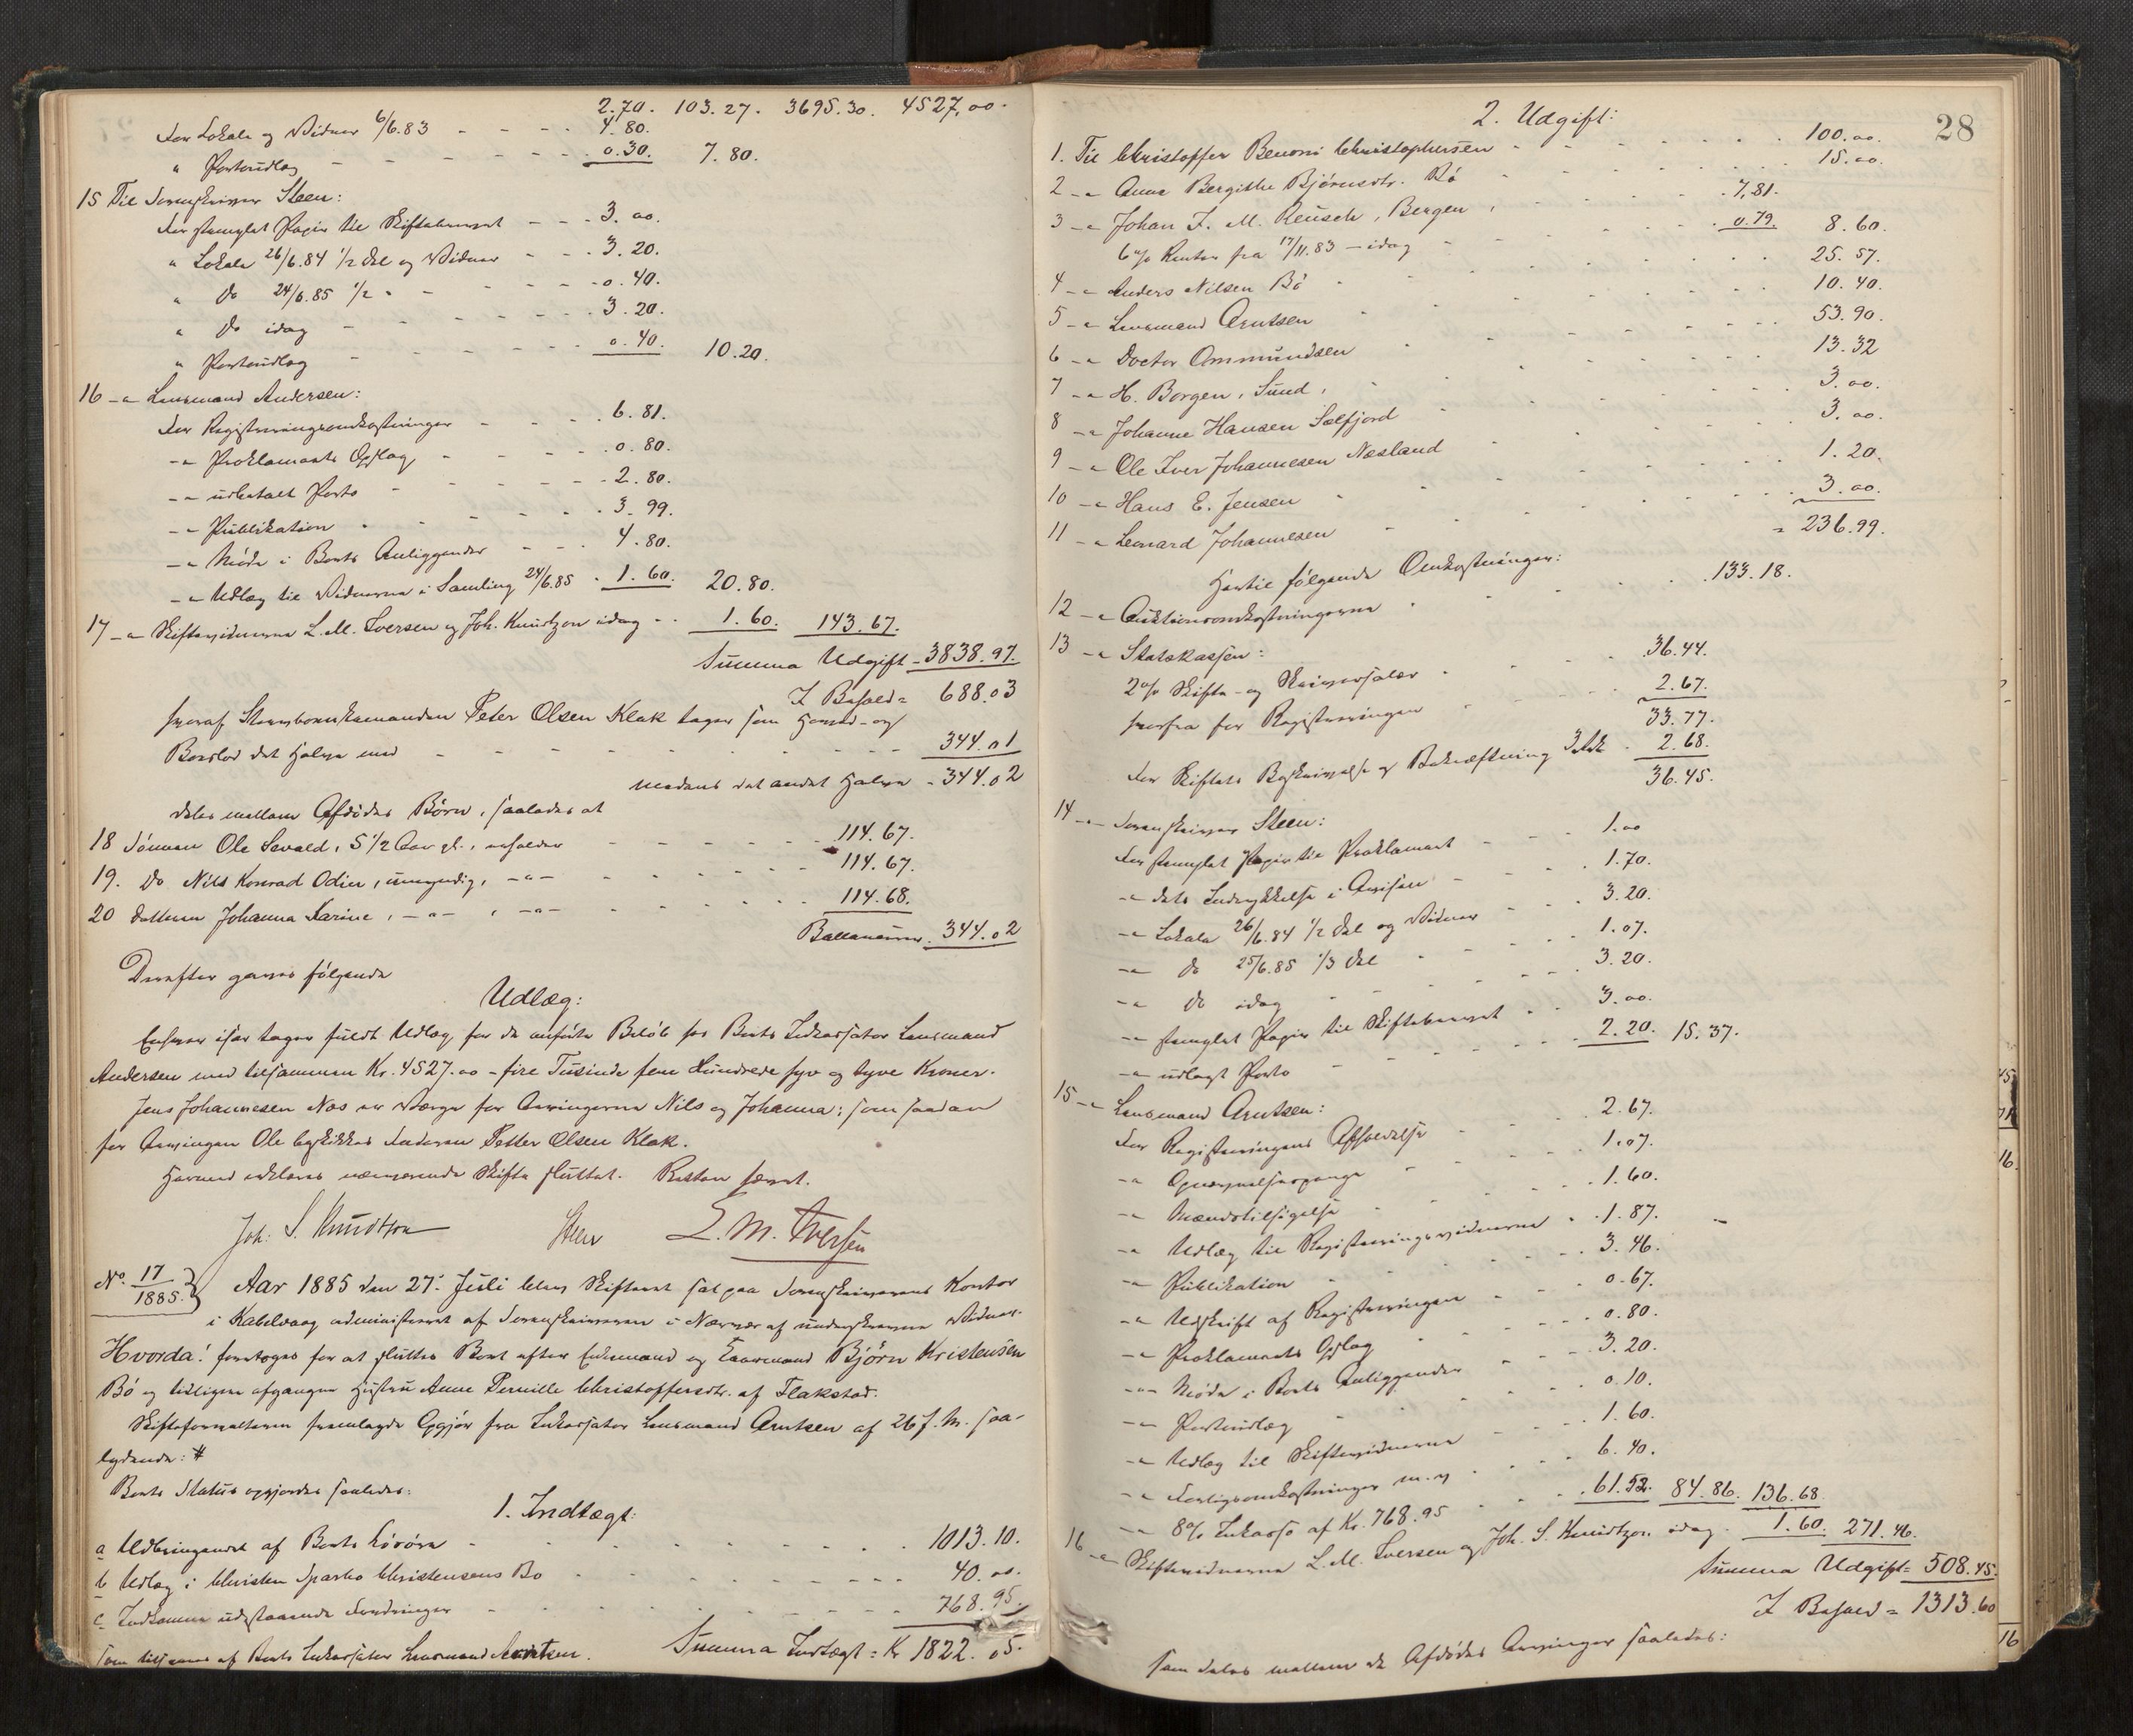 2.70. 103.27. 3695.30. 4527,00.
For Lokale og Vidner 6/6.83 - - - - 4.80.
" Portoudlæg - - - - - - 0.30. 7.80.
15 Til Sorenskriver Steen:
For stemplet Papir til Skiftebrevet - - - 3.00.
" Lokale 26/6.84 1/2 Del og Vidner - - 3.20.
" Do 24/6.85 1/2 " - - - - 0.40.
" Do idag - - - - - 3.20.
" Portoudlæg - - - - - 0.40. 10.20.
16 -"- Lensmand Andersen:
For Registreringsomkostninger - - - 6.81.
-"- Proklamaets Opslag - - - - 0.80.
-"- udbetalt Porto - - - - - 2.80.
-"- Publikation - - - - - 3.99.
-"- Møde i Boets Anliggender - - - 4.80.
-"- Udlæg til Vidnerne i Samling 24/6.85 . 1.60. 20.80.
17 -"- Skiftevidnerne L. M. Iversen og Joh. Knudtzon idag - . 1.60. 143.67.
Summa Udgift - 3838.97.
I Behold = 688.03
hvoraf Sterbboenkemanden Peter Olsen Klak tager som Hoved- og
Boeslod det Halve med - - - - - - - 344.01
medens det andet Halve - 344.02
deles mellem Afdødes Børn, saaledes at
18 Sønnen Ole Sevald, 5 1/2 Aar gl., erholder - - - - 114.67.
19. Do Nils Konrad Odin, umyndig, -"- - - - - 114.67.
20 Datteren Johanna Karine, -"- , -"- - - - - 114.68.
Ballancerer. 344.02
Derefter gaves følgende
Udlæg:
Enhver især tager fuldt Udlæg for de anførte Beløb hos Boets Inkassator Lensmand
Andersen med tilsammen Kr. 4527.00 - fire Tusinde fem Hundrede syv og tyve Kroner.
Jens Johannesen Næs er Værge for Arvingerne Nils og Johanna; som saadan
for Arvingen Ole beskikkes Faderen Petter Olsen Klak.
Hermed erklæres nærværende Skifte sluttet. Retten hævet.
Joh: S. Knudtzon Steen L. M. Iversen
No. 17/1885. } Aar 1885 den 27. Juli blev Skifteret sat paa Sorenskriverens Kontor
i Kabelvaag administreret af Sorenskriveren i Nærvær af underskrevne Vidner.
Hvorda! foretoges for at sluttes Boet efter Enkemand og Gaarmand Bjørn Kristensen
Bø og tidligere afgangne Hustru Anne Pernille Christoffersdtr. af Flakstad.
Skifteforvalteren fremlagde Opgjør fra Inkassator Lensmand Arntsen af 26 f. M. saa-
lydende: #
Boets Status opgjordes saaledes:
1. Indtægt:
a Udbringendet af Boets Løsøre - - - - - - 1013.10.
b Udlæg i Christen Christensens Bo - - - - 40.00.
c. Indkomne udestaaende Fordringer - - - - - 768.95.
som tilsvares af Boets Inkassator Lensmand Arntsen. Summa Indtægt = Kr 1822.05.
28
2. Udgift:
1. Til Christoffer Benoni Christophersen - - - - 100.00.
2 -"- Anne Bergithe Bjørnsdtr. Bø - - - - 15.00.
3 -"- Johan F. M. Reusch, Bergen, - - - . 7,81.
6 % Renter fra 17/11.83 - idag - - - - . 0.79. 8.60.
4 -"- Anders Nilsen Bø - - - - - 25.57.
5 -"- Lensmand Arntsen - - - - - 10.40.
6 -"- Doctor Ommundsen - - - - - 53.90.
7 -"- H. Borgen, Sund, - - - - - 13.32
8 -"- Johanne Hansen Selfjord - - - - 3.00.
9 -"- Ole Iver Johannesen Næsland - - - - 3.00.
10 -"- Hans E. Jensen - - - - - 1.20.
11 -"- Leonard Johannesen - - - - - 3.00.
= 236.99.
Hertil følgende Omkostninger:
12 -"- Auktionsomkostningerne - - - - 133.18.
13 -"- Statskassen:
2 % Skifte- og Skriversalær - - - - 36.44.
herfra for Registreringen - - - 2.67.
33.77.
For Skiftets Beskrivelse og Bekræftning - 2.68.
36.45.
14 -"- Sorenskriver Steen:
For stemplet Papir til Proklamaet - - - 1.00
-"- dets Indrykkelse i Avisen - - - 1.70.
-"- Lokale 26/6.84 1/2 Del og Vidner - - - 3.20.
-"- Do 25/6.85 1/3 Del - - - 1.07.
-"- Do idag - - - - 3.20.
-"- stemplet Papir til Skiftebrevet - - 3.00.
-"- udlagt Porto - - - - - 2.20. 15.37.
15 -"- Lensmand Arntsen:
For Registreringens Afholdelse - - - 2.67.
-"- - - - 1.07.
-"- Mændstilsigelse - - - - 1.60.
-"- Udlæg til Registreringsvidnerne - - 1.87.
-"- Publikation - - - - - 3.46.
-"- Udskrift af Registreringen - - - 0.67.
-"- Proklamaets Opslag - - - 0.80.
-"- Møde i Boets Anliggender - - - 3.20.
-"- Portoudlæg - - - - 0.10.
-"- Udlæg til Skiftevidnerne - - - 1.60.
-"- m. v. - - - 6.40.
-"- 8 % Inkasso af Kr. 768.95 - - - 61.52. 84.86. 136.68.
16 -"- Skiftevidnerne L. M. Iversen og Joh. S. Knudtzon idag - 1.60. 271.46.
Summa Udgift = 508.45.
I Behold = 1313.60
som deles mellem de Afdødes Arvinger saaledes: